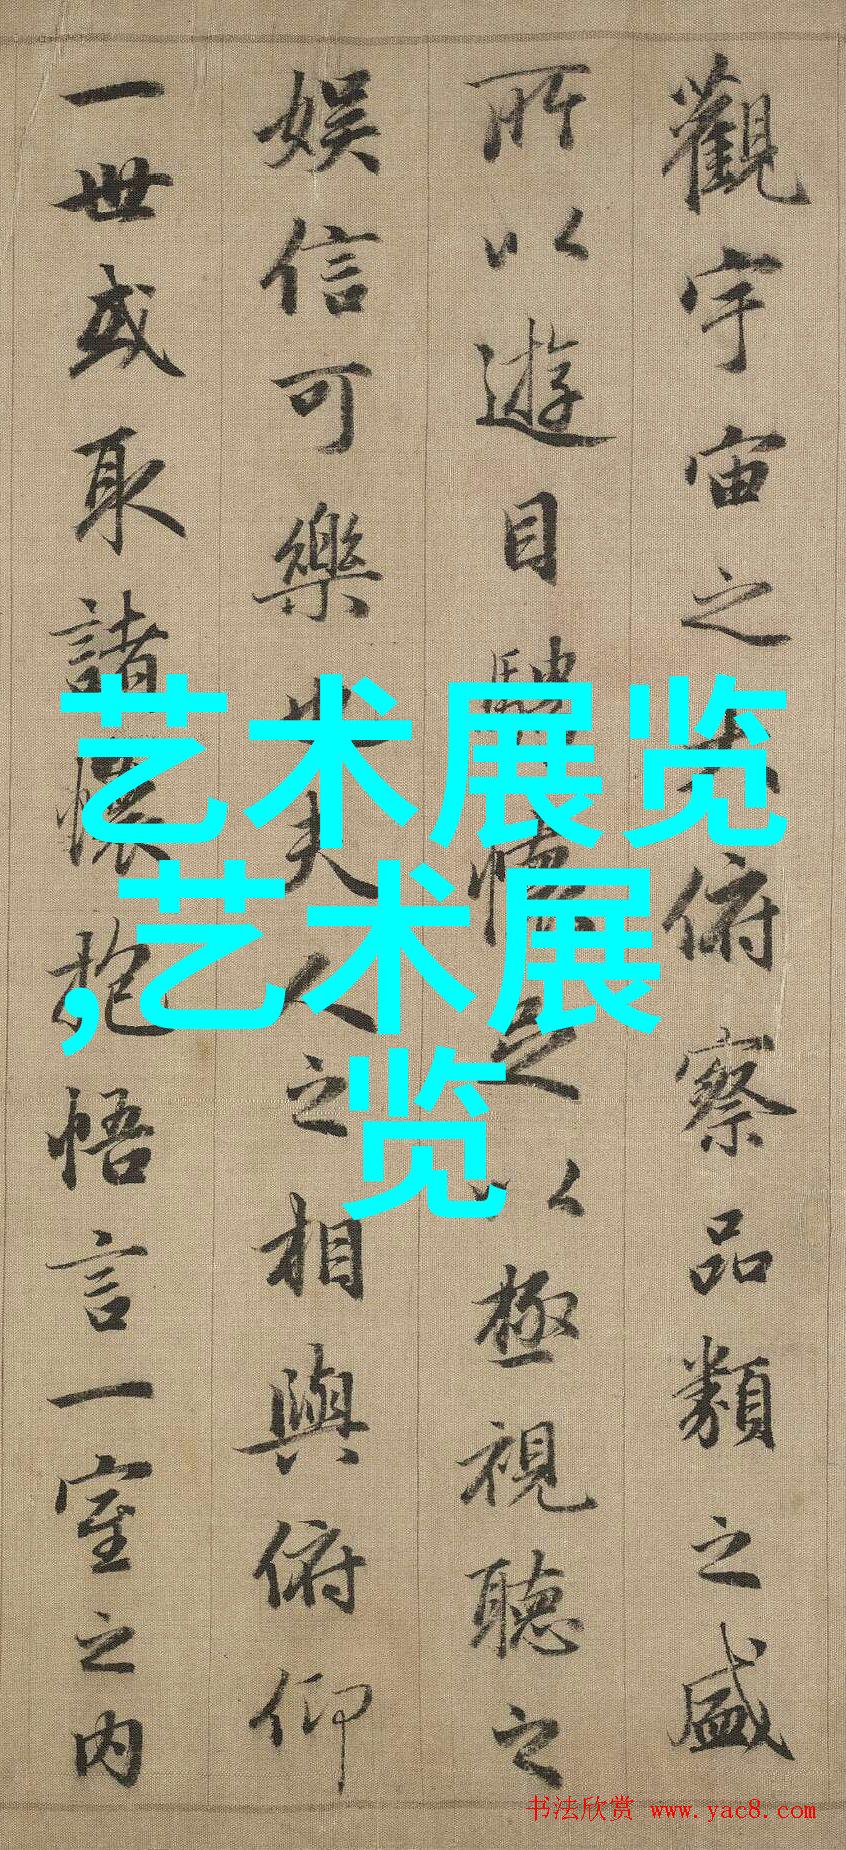 觀宇宙之大俯察品類之盛
所以遊目騁懷足以極視聽之
娛信可樂也夫人之相與俯仰
一世或取諸懷抱悟言一室之内
艺术展览
,艺术展
览
书法欣赏 www.yac8.com